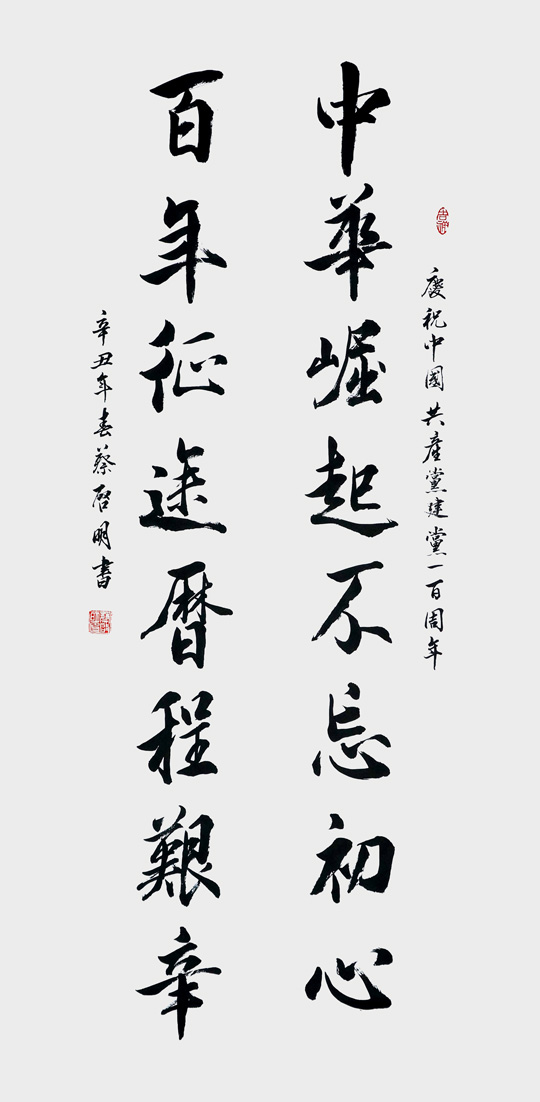 慶祝中國共產黨建黨一百周年
中華崛起不忘初心
百年征途曆程艱辛
辛丑年春蔡啓明書